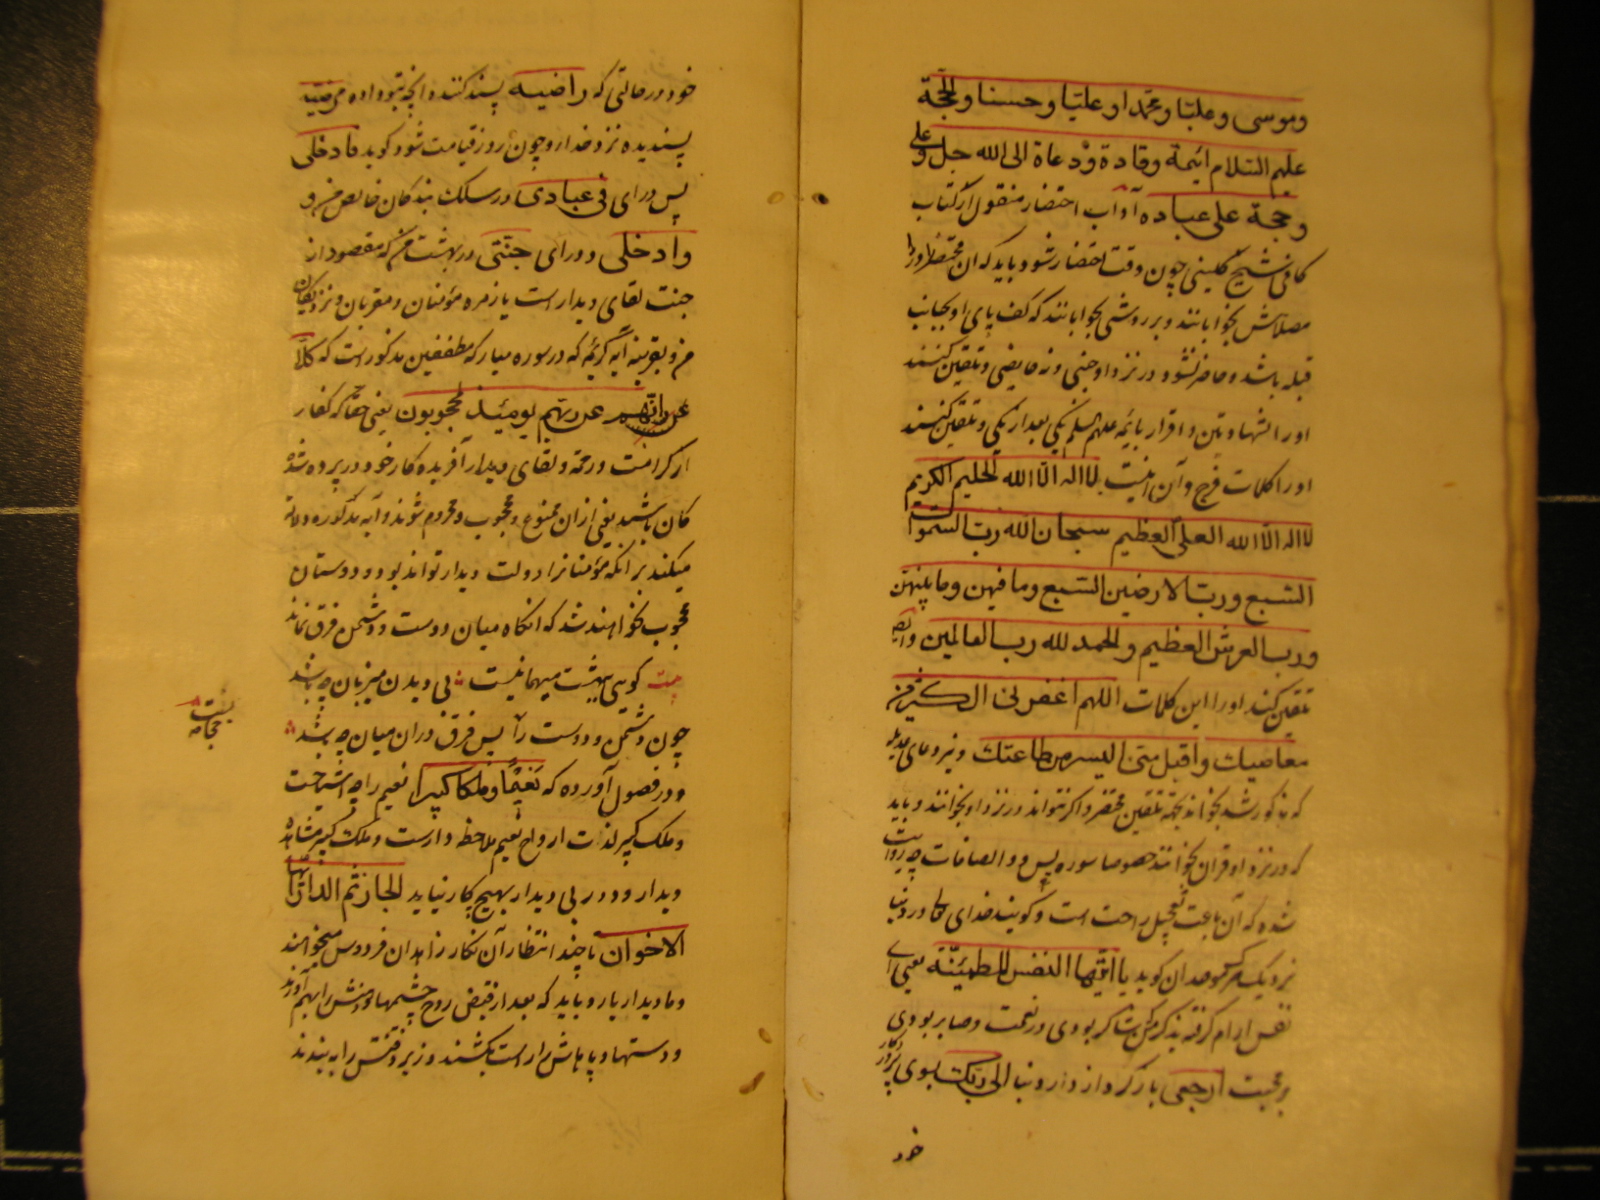 وموسی وعلیّا ومحمّدا وعلیّا وحسنا والحجّة
علیهم السّلام ائیمة وقادة ودعاة الی الله جل وعلی
وحجة علی عباده آداب احتضار منقول از کتاب
کافی شیخ کلینی چون وقت احتضار شود باید که ان محتضر را در
مصلاش بخوابانند و بر روشی بخوابانند که کف پای او بجانب
قبله باشد و حاضر نشود در نزد او جنبی و نه حایضی و تلقین کنند
اورا شهادتین و اقرار بایمه علیهم السلم یکی بعد از یکی و تلقین کنند
اورا کلمات فرج و آن اینست لا اله الّا الله الحلیم الکریم
لا اله الّا الله العلی العظیم سبحان الله رب السّموات
السّبع وربّ الارضین السّبع وما فیهن وما بینهن
ورب العرش العظیم والحمد لله رب العالمین وایضا
تلقین کنند اورا این کلمات اللهم اغفر لی الکثیر من
معاصیك واقبل منّی الیسیر من طاعتك ونیز دعای عدیله
که مذکور شد بخواند بجهة تلقین محتضر و اگر نتواند در نزد او بخوانند و باید
که در نزد او قران بخوانند خصوصا سوره یس و والصافات چه روایت
شده که آن باعث تعجیل راحت است و گویند خدای تعالی در دنیا
نزدیک مرگ موحدان گوید یا ایّتها النفس المطمئنّة یعنی ای
نفس ارام گرفته بذکر من شاکر بودی در نعمت و صابر بودی
در محنت ارجعی بازگرد از دار دنیا الی ربّك بسوی پروردگار
خود
خود در حالتی که راضیة پسند کننده انچه بتو داده مرضیة
پسندیده نزد خدا و چون روز قیامت شود گوید فادخلی
پس درای فی عبادی در سلک بندکان خالص من و
وادخلی و درای جنّتی در بهشت من که مقصود از
جنت لقای دیدار است با زمره مؤمنان و مقربان و نزدیکان
من و بقرینه آیه کریمه که در سوره مبارکه مطففین مذکور است که کلّا
انّهم عن ربّهم یومئذ لمحجوبون یعنی حقا که کفار
از کرامت و رحمة و لقای دیدار آفریده کار خود در پرده شد
کان باشند یعنی از ان ممنوع و محجوب و محروم شوند و آیه مذکوره دلالة
میکند بر انکه مؤمنانرا دولت دیدار تواند بود و دوستان
محجوب نخواهند شد که انکاه میان دوست و دشمن فرق نماند
بیت کویی بهشت میهمانیست بی دیدن میزبان چه باشد
چون دشمن و دوست را پس فرق دران میان چه باشد
و در فصول آورده که نعیمًا وملکا کبیرا نعیم راحت اشباحست
و ملک کبیر لذات ارواح نعیم ملاحظه دارست و ملک کبیر مشاهده
دیدار و دار بی دیدار بهیچ کار نیاید الجار ثم الدار ایّها
الاخوان تا چند انتظار آن نکار زاهدان فردوس میخواهند
و ما دیدار یار و باید که بعد از قبض روح چشمها و دهنش را بهم آورند
و دستها و پاهاش راست بکشند و زیر ذقنش را به بندند